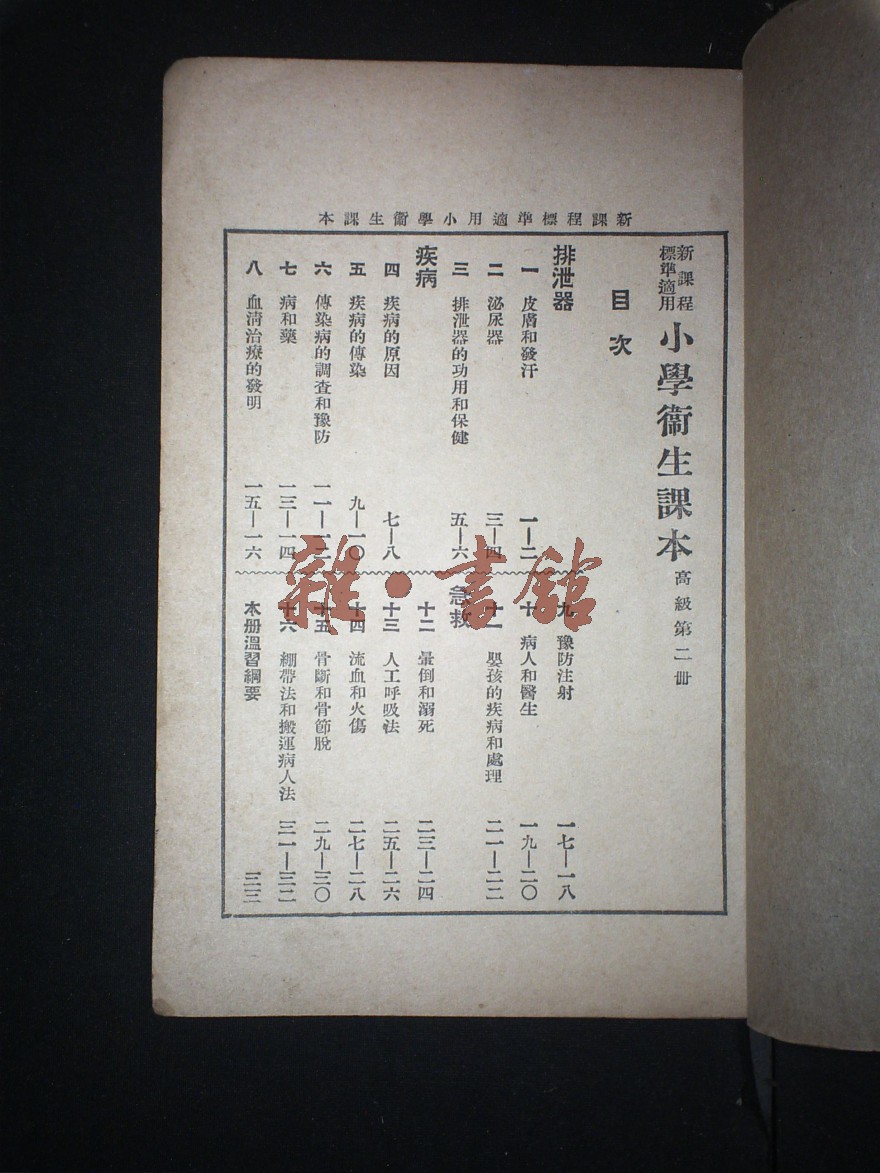 新課程標準適用小學衞生課本
新課程標準適用 小學衞生課本 高級第二册
目次
排泄器
一 皮膚和發汗 一—二
二 泌尿器 三—四
三 排泄器的功用和保健 五—六
疾病
四 疾病的原因 七—八
五 疾病的傳染 九—一〇
六 傳染病的調查和豫防 一一—一二
七 病和藥 一三—一四
八 血淸治療的發明 一五—一六
九 豫防注射 一七—一八
十 病人和醫生 一九—二〇
十一 嬰孩的疾病和處理 二一—二二
急救
十二 暈倒和溺死 二三—二四
十三 人工呼吸法 二五—二六
十四 流血和火傷 二七—二八
十五 骨斷和骨節脫 二九—三〇
十六 綳帶法和搬運病人法 三一—三二
本册溫習綱要 三三
雜·書館